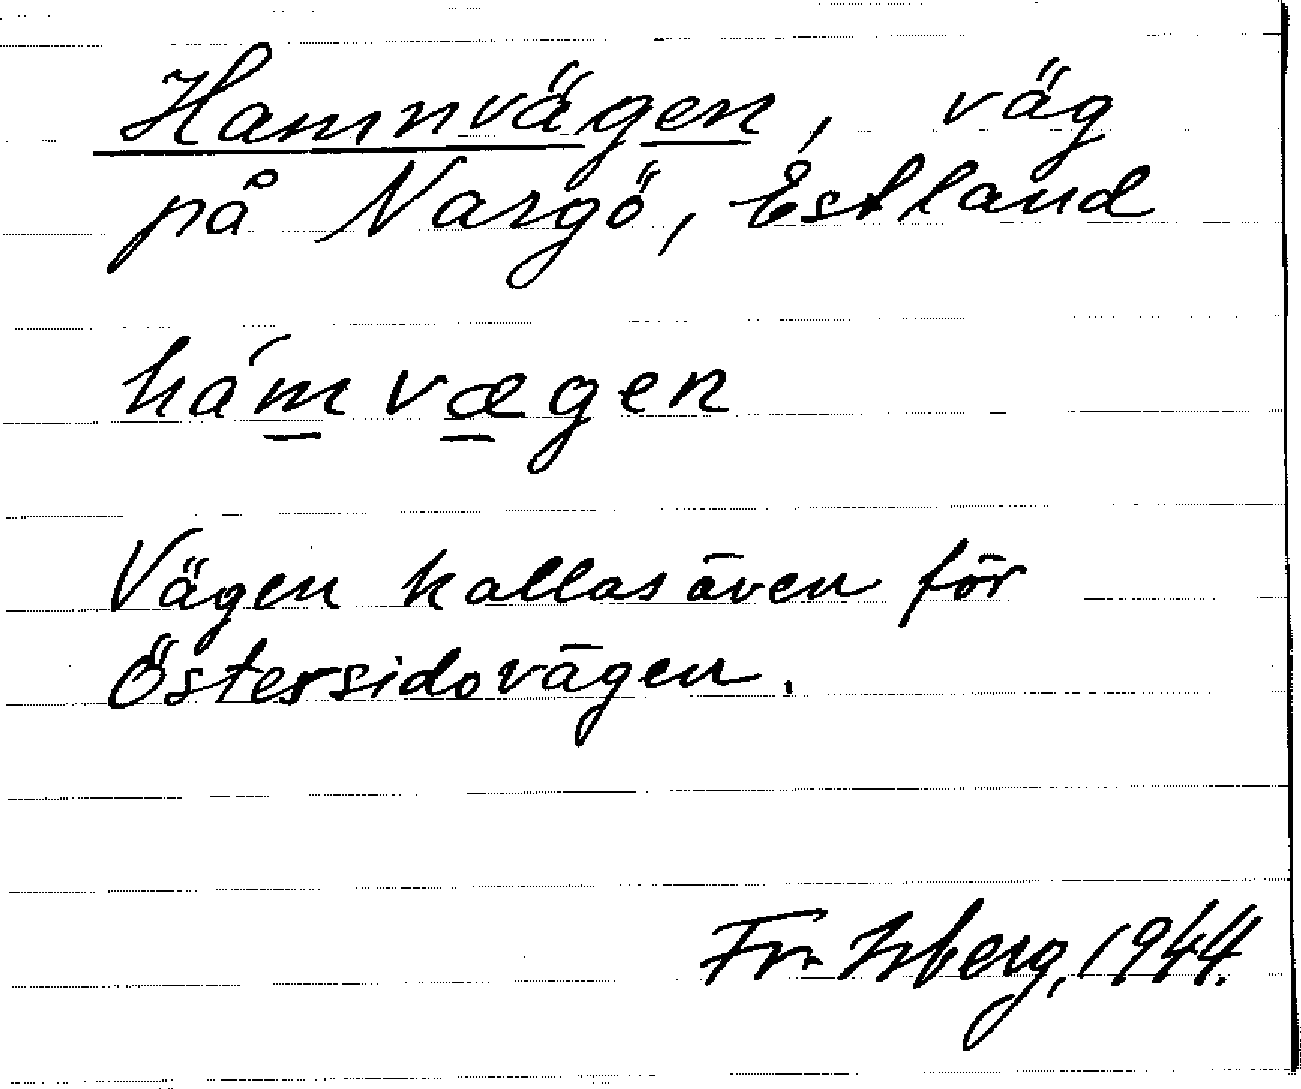 Hamnvägen, väg
på Nargö, Estland
hámvægen
Vägen kallas även för
Östersidovägen.
Fr. Isberg, 1944.